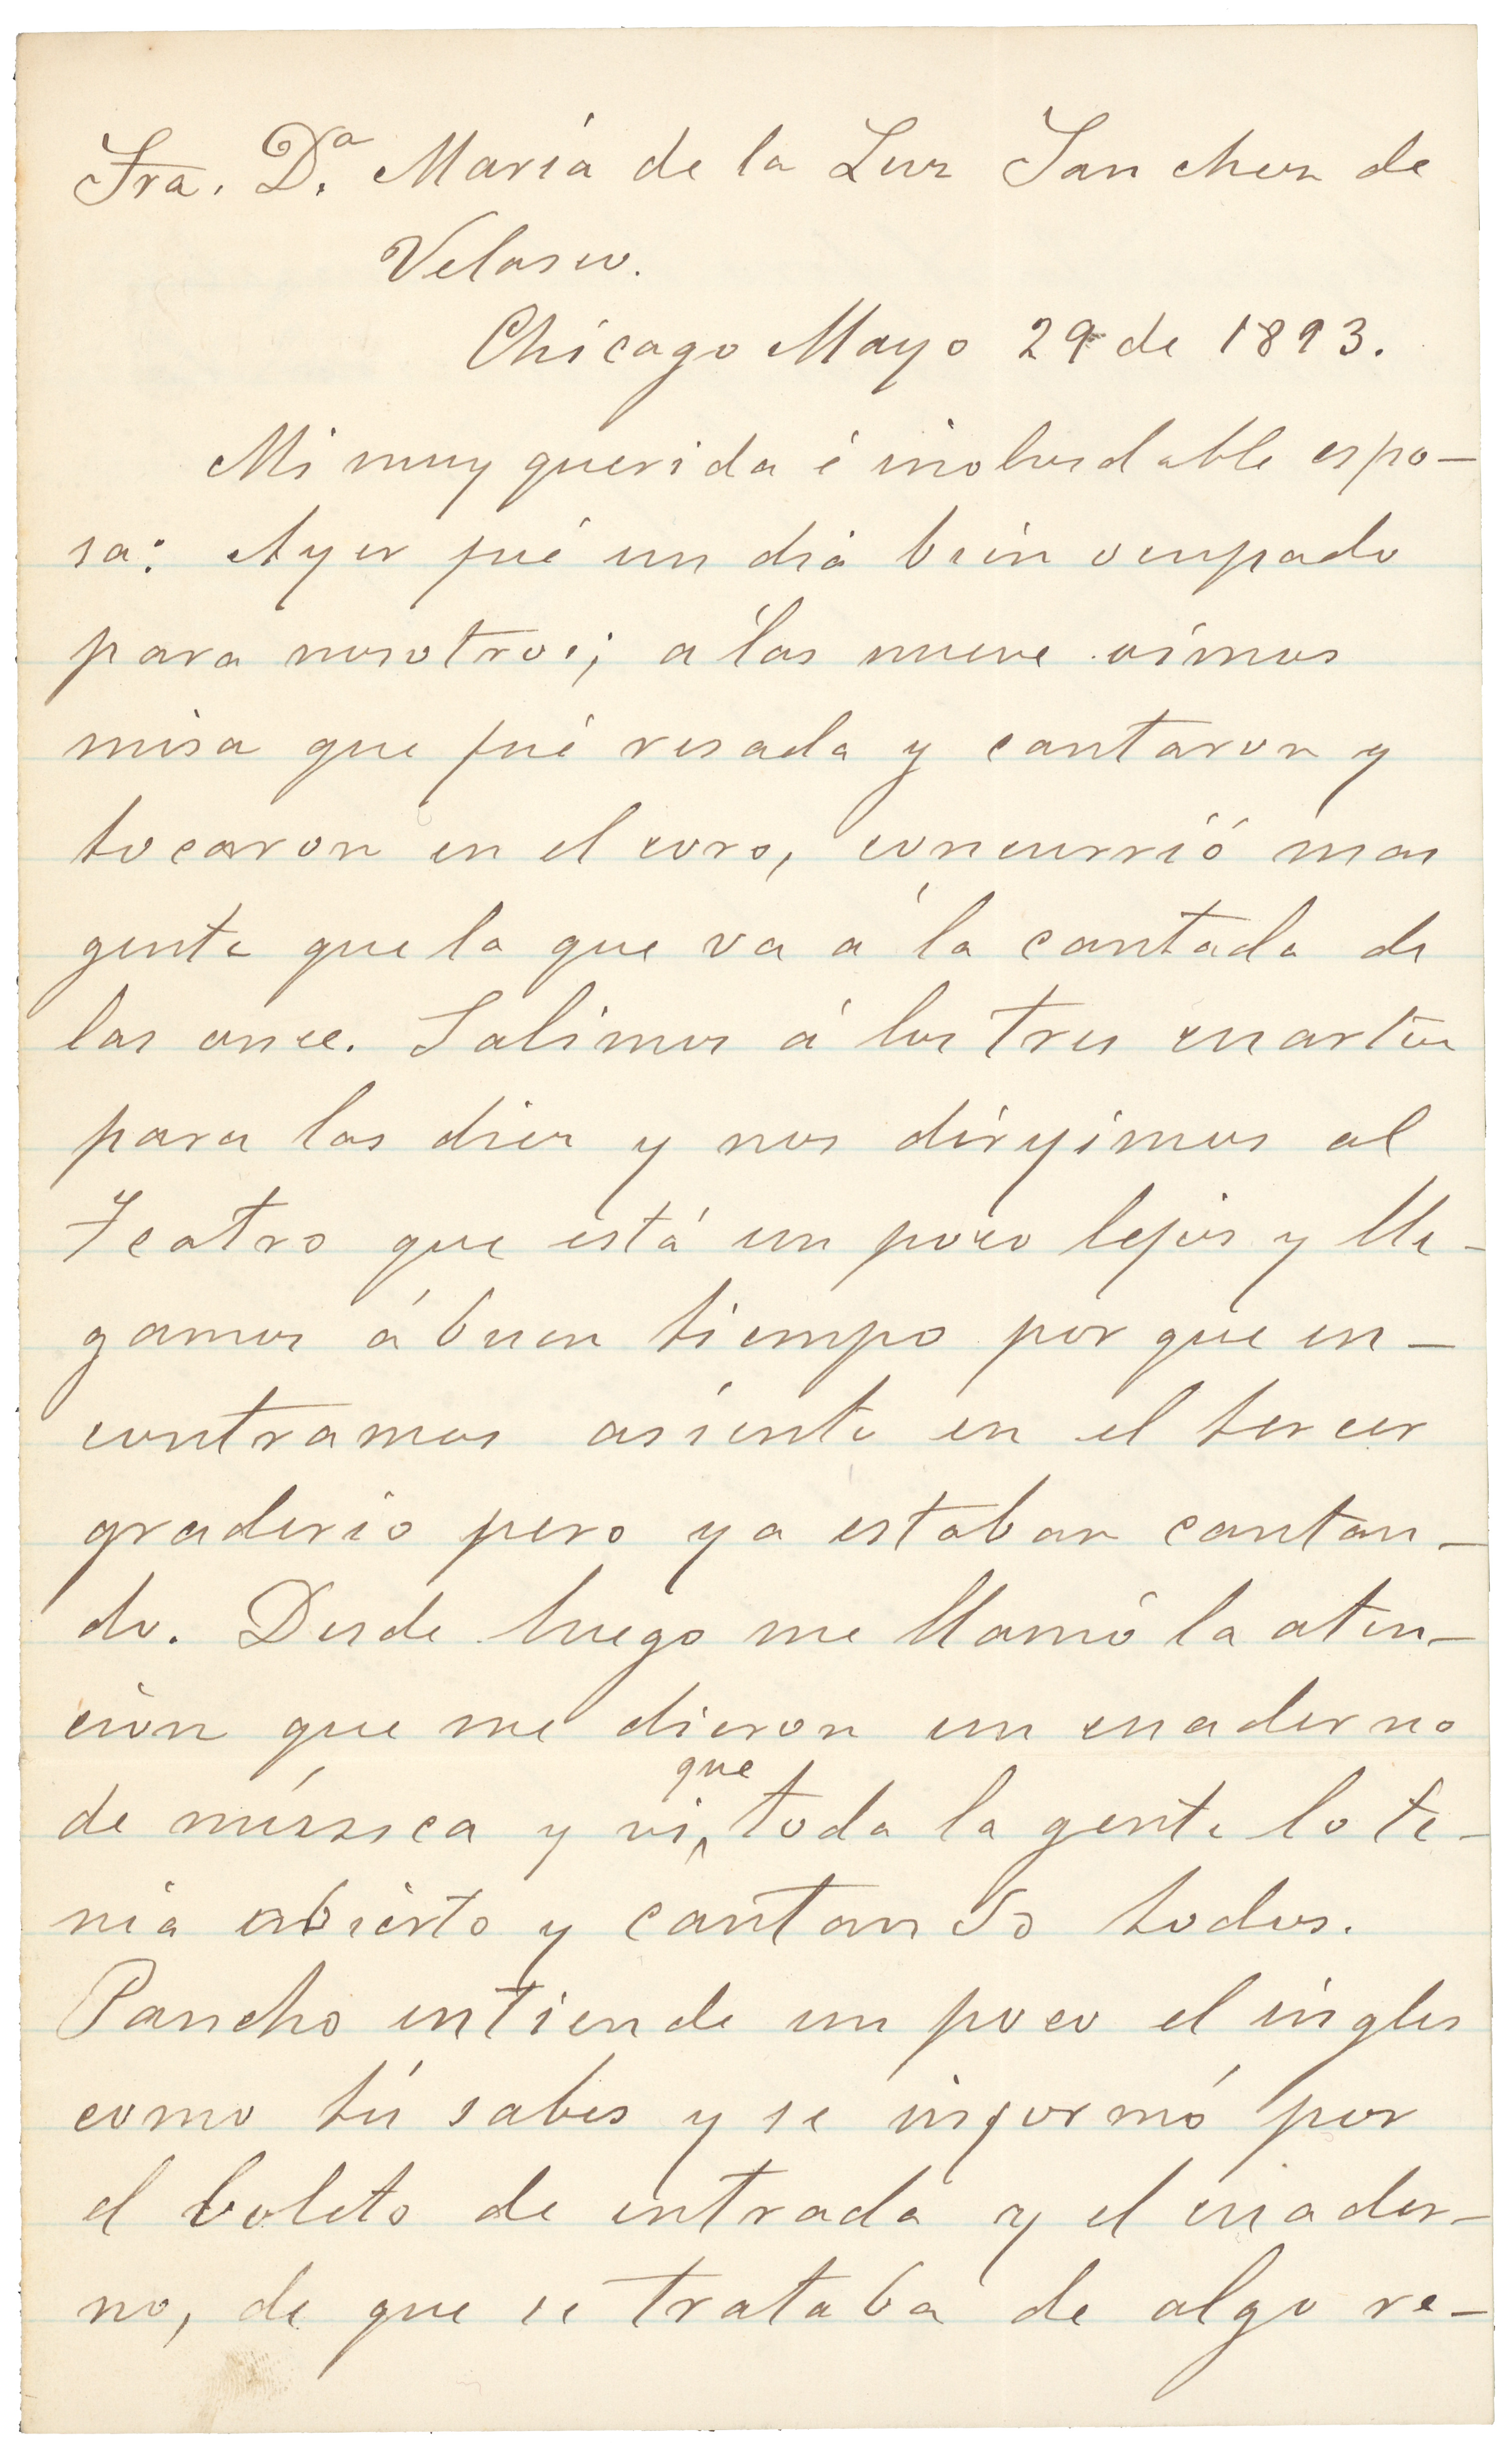 Sra. D.ª María de la Luz Sanchez de
Velasco.
Chicago Mayo 29 de 1893.
Mi muy querida é inolvidable espo-
sa: Ayer fué un dia bien ocupado
para nosotros; á las nueve oímos
misa que fué resada y cantaron y
tocaron en el coro, concurrió mas
gente que la que va á la cantada de
las once. Salimos á los tres cuartos
para las diez y nos dirijimos al
Teatro que está un poco lejos y lle-
gamos á buen tiempo por que en-
contramos asiento en el tercer
graderio pero ya estaban cantan-
do. Desde luego me llamó la aten-
cion que me dieron un cuaderno
de mússica y vi que toda la gente lo te-
nia abierto y cantando todos.
Pancho entiende un poco el ingles
como tú sabes y se informó por
el boleto de entrada y el cuader-
no, de que se trataba de algo re-